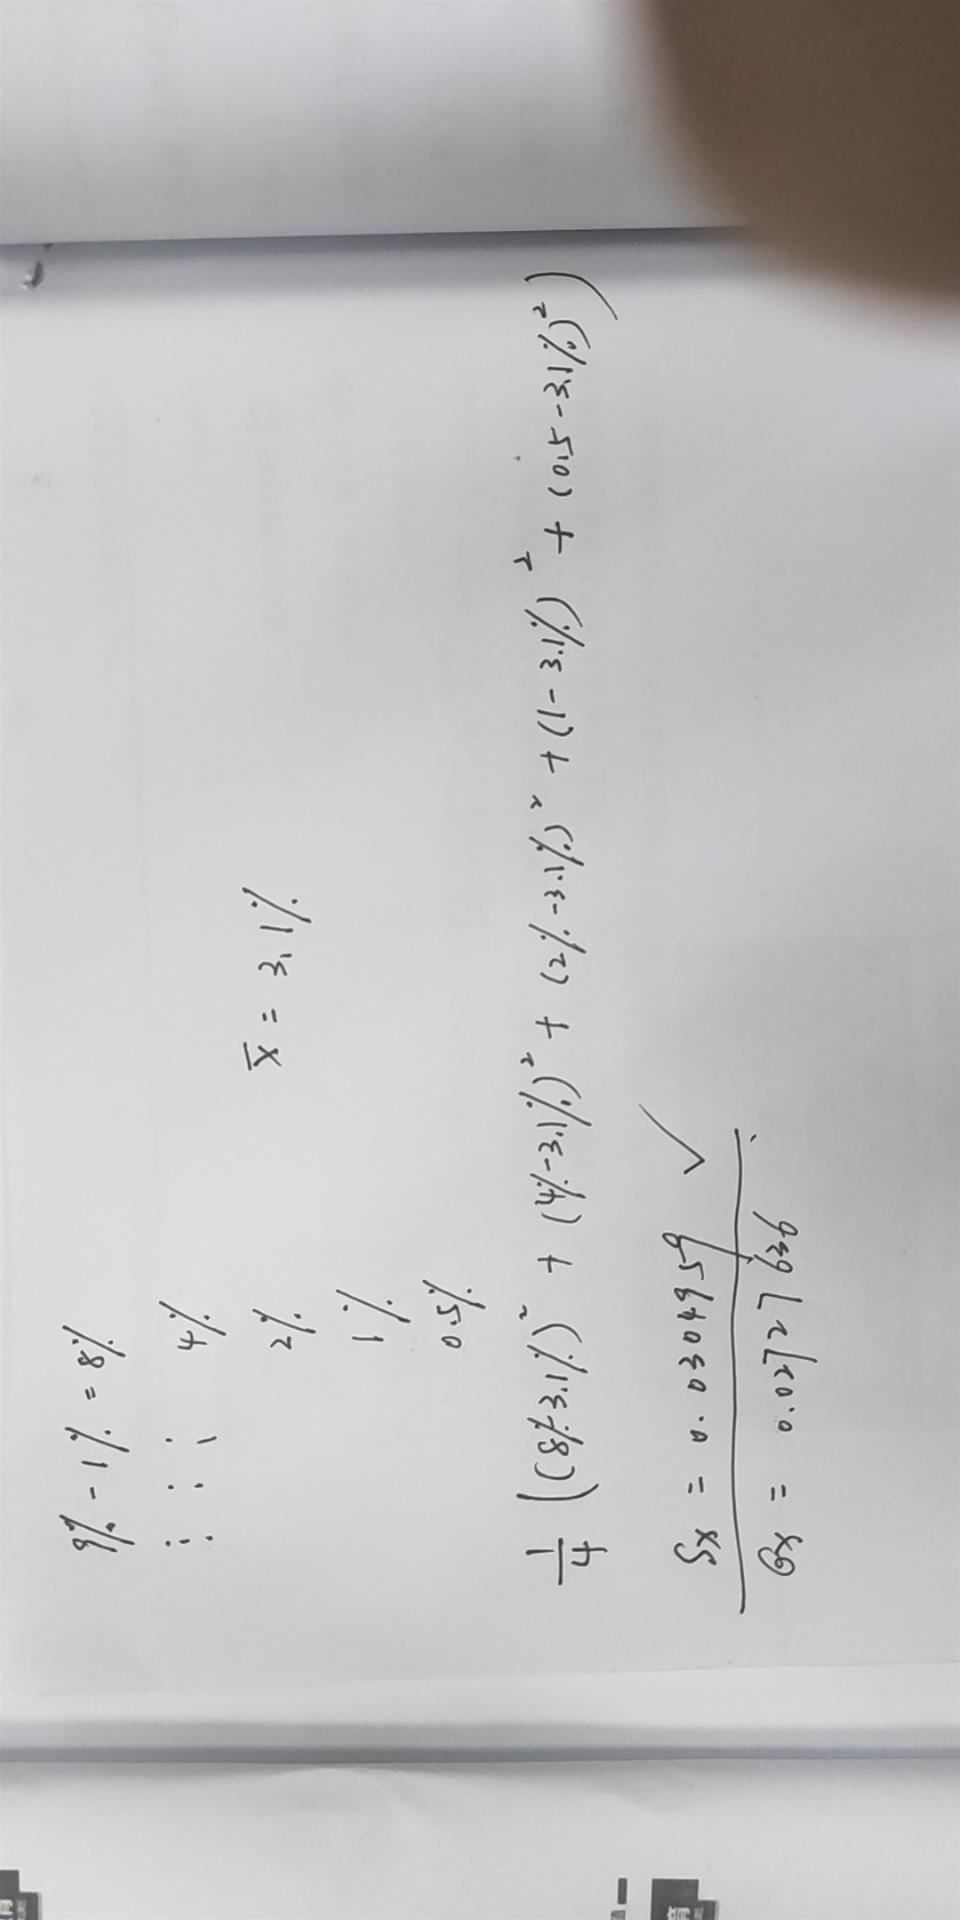 9% - 1% = 8%
4%
2%
1%
0.5%
x̄ = 3.1%
1/4 ((8%-3.1%)² + (4%-3.1%)² + (2%-3.1%)² + (1-3.1%)² + (0.5-3.1%)²)
Sx = 0.0304959
σx = 0.0272